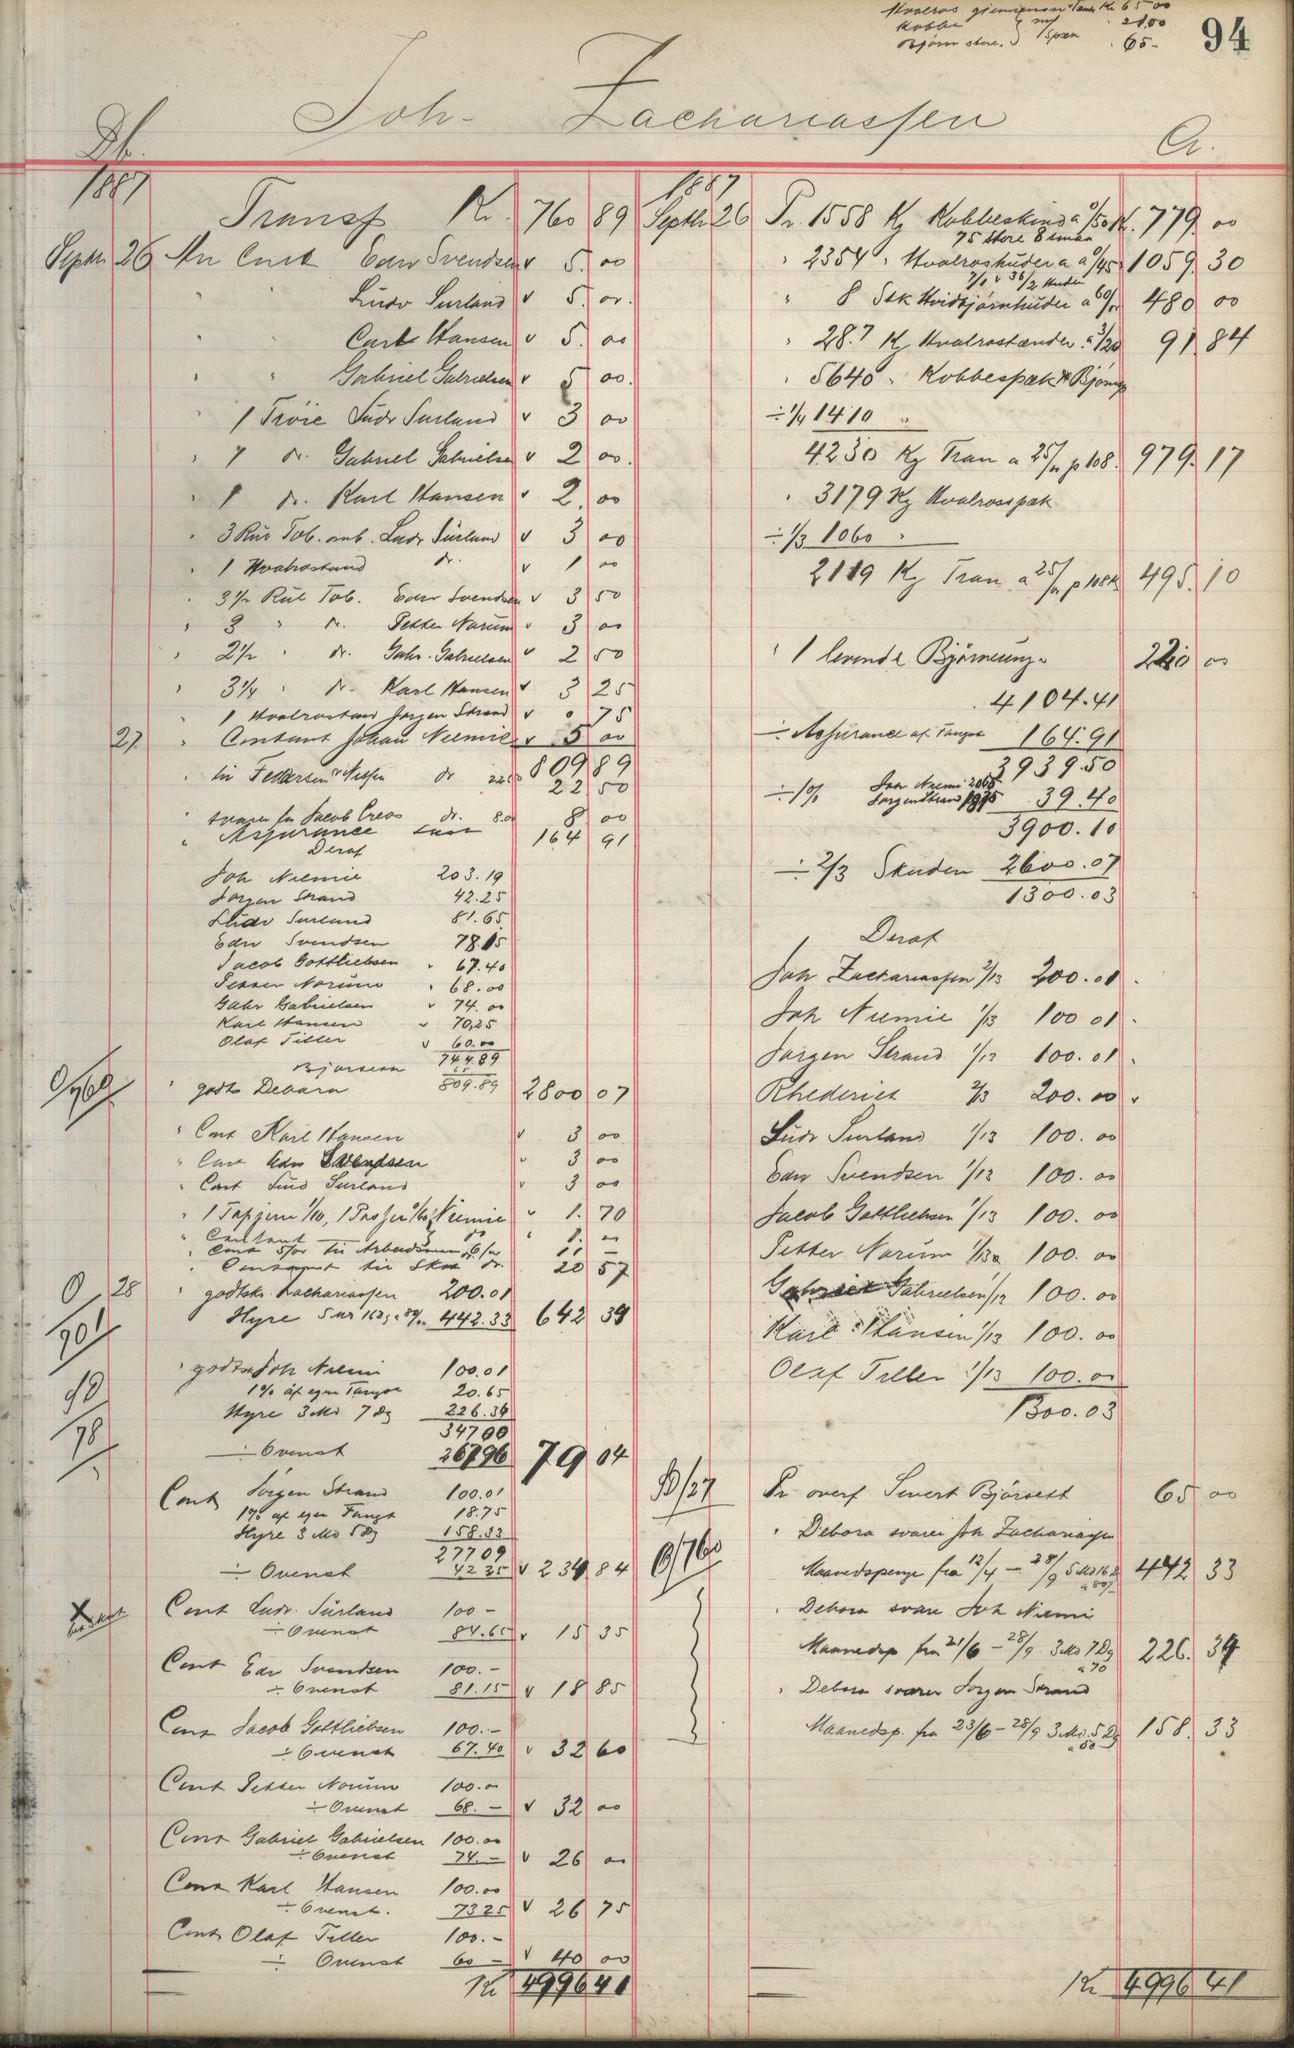 Hvalros gjennemsn Tand Kr 65 00
Kobbe } m/ " 21.00
Bjørn store. } Spæk " 65-
94
Joh- Zachariassen
Db.
Cr.
1887
Transp Kr. 760 89
Septbr 26 An Cont Edw Svendsen v 5. 00
" " Ludv Surland v 5. 00.
" " Carl Hansen v 5. 00
" " Gabriel Gabrielsen v 5 00.
" 1 Trøie Ludv Surland v 3 00
" 1 do. Gabriel Gabrielsen v 2 00.
" 1 do. Karl Hansen v 2. 00
" 3 Rul Tob. omb. Ludv Surland v 3 00
" 1 Hvalrostand do. v 1 00
" 3½ Rul Tob. Edw Svendsen v 3 50
" 3 " do. Petter Norum v 3 00
" 2½ " do. Gabr. Gabrielsen v 2 50
" 3¼ " do. Karl Hansen v 3 25
" 1 Hvalrostand Jørgen Strand v 0 75
27 " Contant Johan Niemie v 5 00
809 89
" til Pettersen & Nilsen do 22.50 22 50
" svarer for Jacob Creos do. 8.0 8 00
" Assurance 164 91
Deraf
Joh Niemie 203.19
Jørgen Strand 42.25
Ludv Surland 81.65
Edw Svendsen 78.15
Jacob Gottliebsen " 67.40
Petter Norum " 68.00
Gabr Gabrielsen v 74.00
Karl Hansen " 70,25
Olaf Tiller v 60.00
744.89
Bjørseth 65
809.89
O/760 " godts Debora 2800 07
" Cont Karl Hansen v 3 00
" Cont Edw Svendsen v 3 00
" Cont Lud Surland v 3 00
" Niemie " 1. 70
" Contant do " 1. 00
" Cont til 11 -
" Contant til Skat do. 20 57
O/701 28 " godtskr Zachariassen 200.01
Hyre 5 M 16 Dg a 80/00 442.33 642 34
90/78 " godtskr Joh Niemi 100.01
1% af egen Fangst 20.65
Hyre 3 Md 7 Dg 226.34
347 00
÷ Ovenst 267 96 79 04
Cont Jørgen Strand 100.01
1% af egen Fangst 18.75
Hyre 3 Md 5 Dg 158.33
277 09
÷ Ovenst 42 25 v 234 84
Cont Ludv. Surland 100 -
÷ Ovenst 84.65 v 15 35
Cont Edv Svendsen 100.-
÷ Ovenst 81.15 v 18 85
Cont Jacob Gottliebsen 100.-
÷ Ovenst 67.40 v 32 60
Cont Petter Norum 100.00
÷ Ovenst 68.- v 32 00
Cont Gabriel Gabrielsen 100.00
÷ Ovenst 74.- v 26 00
Cont Karl Hansen 100.00
÷ Ovenst. 73 25 v 26 75
Cont Olaf Tiller 100.-
÷ Ovenst 60 - v 40 00
Kr 4996 41
1887
Septbr 26 Pr. 1558 Kg Kobbeskind a 0/50 Kr. 779. 00
75 store 8 smaa
" 2354 " Hvalroshuder a 0/45 1059. 30
" 8 Stk Hvidbjørnhuder a 60/00 480 00
" 28.7 Kg Hvalrostænder a 3/20 91. 84
" 5640 " Kobbespæk & Bjørnsp
÷ ¼ 1410 "
4230 Kg Tran a 25/00 p 108. 979. 17
" 3179 Kg Hvalrosspæk
÷ 1/3 1060 "
2119 Kg Tran a 25/00 p 108 K 495. 10
" 1 levende Bjørneunge 220 00
4104.41
÷ Assurance af Fangst 164.91
3939.50
÷ 1% Joh Niemi 20.65
Jørgen Strand 18.75 39.40
3900.10
÷ 2/3 Skuden 2600.07
1300.03
Deraf
Joh Zachariassen 2/13 200.01
Joh Niemie 1/13 100 01
Jørgen Strand 1/13 100.01
Rhederiet 2/13 200.00 v
Ludv Surland 1/13 100.00
Edw Svendsen 1/13 100.00
Jacob Gottliebsen 1/13 100.00
Petter Norum 1/13 100.00
Gabriel Gabrielsen 1/13 100.00
Karl Hansen 1/13 100.00
Olaf Tiller 1/13 100.00
1300.03
Pr overf Sivert Bjørseth 65 00
O/760 " Debora svarer Joh Zachariassen
Maanedspenge fra 12/4 - 28/9 5 Md 16 D a 80/- 442 33
" Debora svare Joh Niemi
Maanedsp fra 21/6 - 28/9 3 Md 7 Dg a 70 226. 34
" Debora svarer Jørgen Strand
Maanedsp. fra 23/6 - 28/9 3 Md. 5 Dg a 50 158. 33
Kr 4996 41